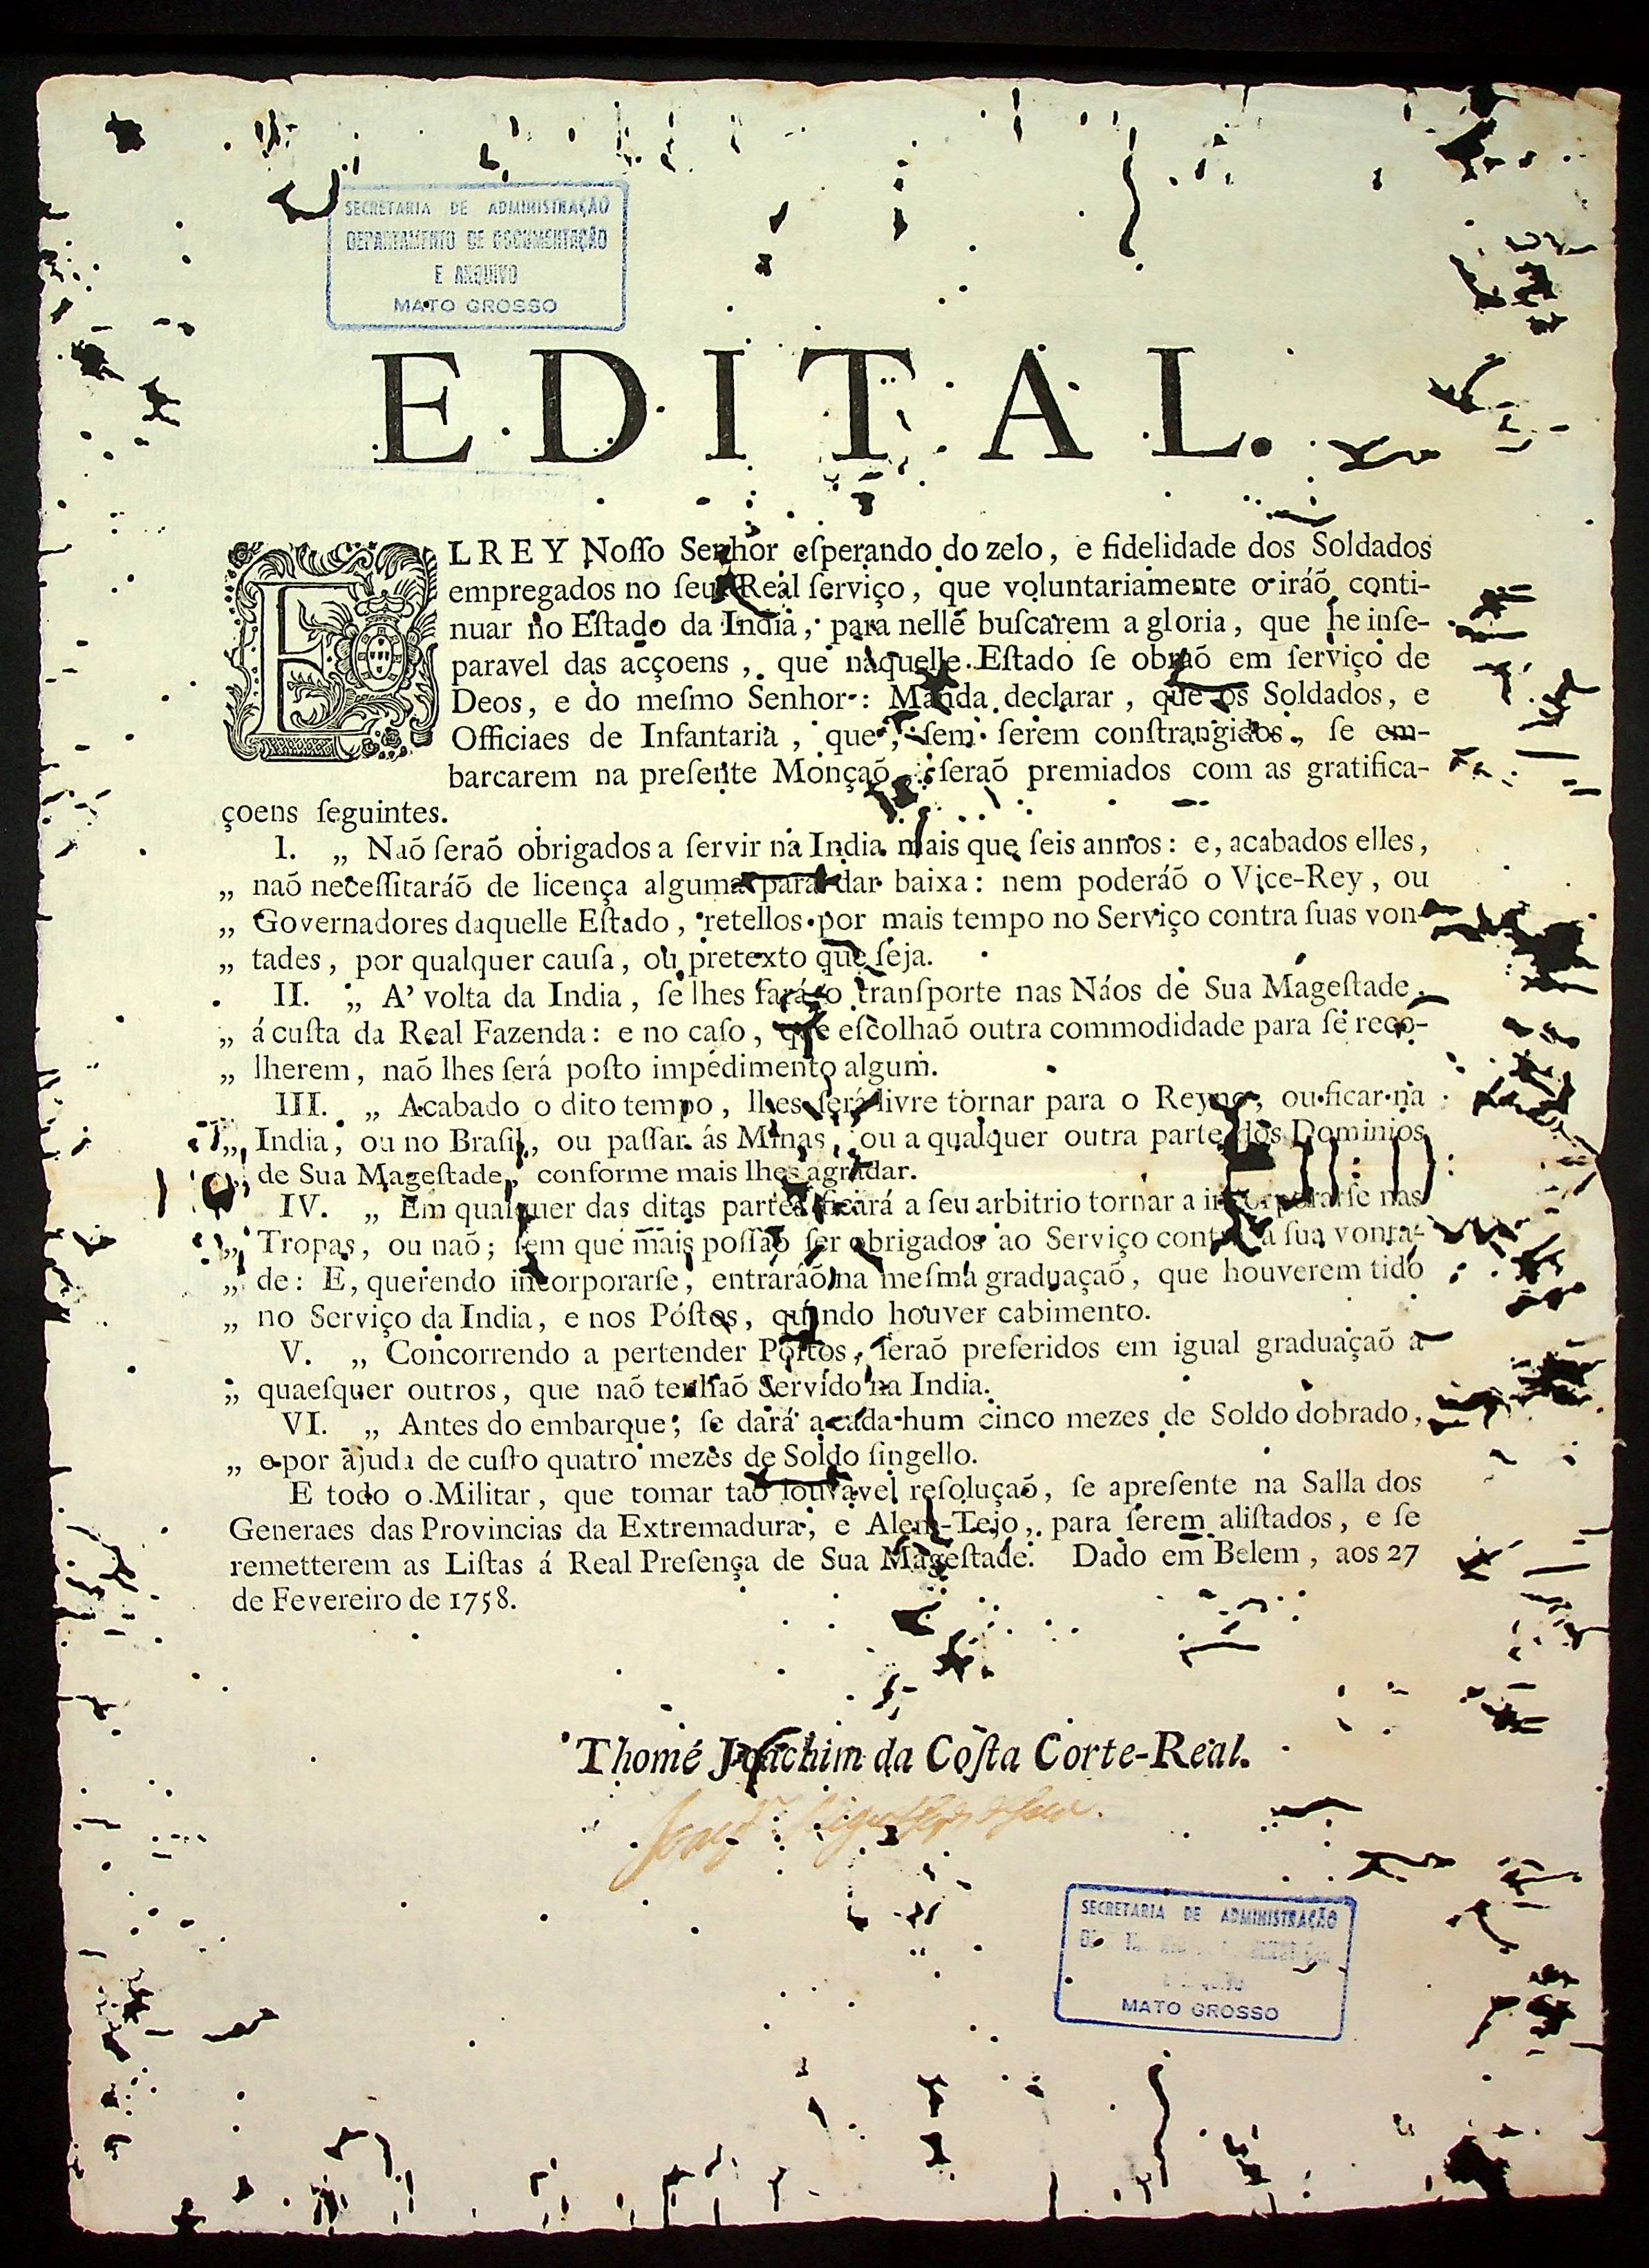 SECRETARIA DE ADMINISTRAÇÃO
DEPARTAMENTO DE DOCUMENTAÇÃO
E ARQUIVO
MATO GROSSO
EDITAL.
ELREY Noſſo Senhor eſperando do zelo, e fidelidade dos Soldados
empregados no ſeu Real ſerviço, que voluntariamente o iráõ conti-
nuar no Eſtado da India, para nelle buſcarem a gloria, que he inſe-
paravel das acçoens, que naquelle Eſtado ſe obraõ em ſerviço de
Deos, e do meſmo Senhor: Manda declarar, que os Soldados, e
Officiaes de Infantaria, que, ſem ſerem conſtrangidos, ſe em-
barcarem na preſente Monçaõ, ſeraõ premiados com as gratifica-
çoens ſeguintes.
I. „ Naõ ſeraõ obrigados a ſervir na India mais que ſeis annos: e, acabados elles,
„ naõ neceſſitaráõ de licença alguma para dar baixa: nem poderáõ o Vice-Rey, ou
„ Governadores daquelle Eſtado, retellos por mais tempo no Serviço contra ſuas von-
„ tades, por qualquer cauſa, ou pretexto que ſeja.
II. „ A' volta da India, ſe lhes fará o tranſporte nas Náos de Sua Mageſtade
„ á cuſta da Real Fazenda: e no caſo, que eſcolhaõ outra commodidade para ſe reco-
„ lherem, naõ lhes ſerá poſto impedimento algum.
III. „ Acabado o dito tempo, lhes ſerá livre tornar para o Reyno, ou ficar na
„ India, ou no Braſil, ou paſſar ás Minas, ou a qualquer outra parte dos Dominios
„ de Sua Mageſtade, conforme mais lhes agradar.
IV. „ Em qualquer das ditas partes ficará a ſeu arbitrio tornar a incorporarſe nas
„ Tropas, ou naõ; ſem que mais poſſaõ ſer obrigados ao Serviço contra a ſua vonta-
„ de: E, querendo incorporarſe, entraráõ na meſma graduaçaõ, que houverem tido
„ no Serviço da India, e nos Póſtos, quando houver cabimento.
V. „ Concorrendo a pertender Poſtos, ſeraõ preferidos em igual graduaçaõ a
„ quaeſquer outros, que naõ tenhaõ Servido na India.
VI. „ Antes do embarque, ſe dará a cada hum cinco mezes de Soldo dobrado,
„ e por ajuda de cuſto quatro mezes de Soldo ſingello.
E todo o Militar, que tomar taõ louvavel reſoluçaõ, ſe apreſente na Salla dos
Generaes das Provincias da Extremadura, e Alem-Tejo, para ſerem aliſtados, e ſe
remetterem as Liſtas á Real Preſença de Sua Mageſtade. Dado em Belem, aos 27
de Fevereiro de 1758.
Thomé Joachim da Coſta Corte-Real.
SECRETARIA DE ADMINISTRAÇÃO
MATO GROSSO